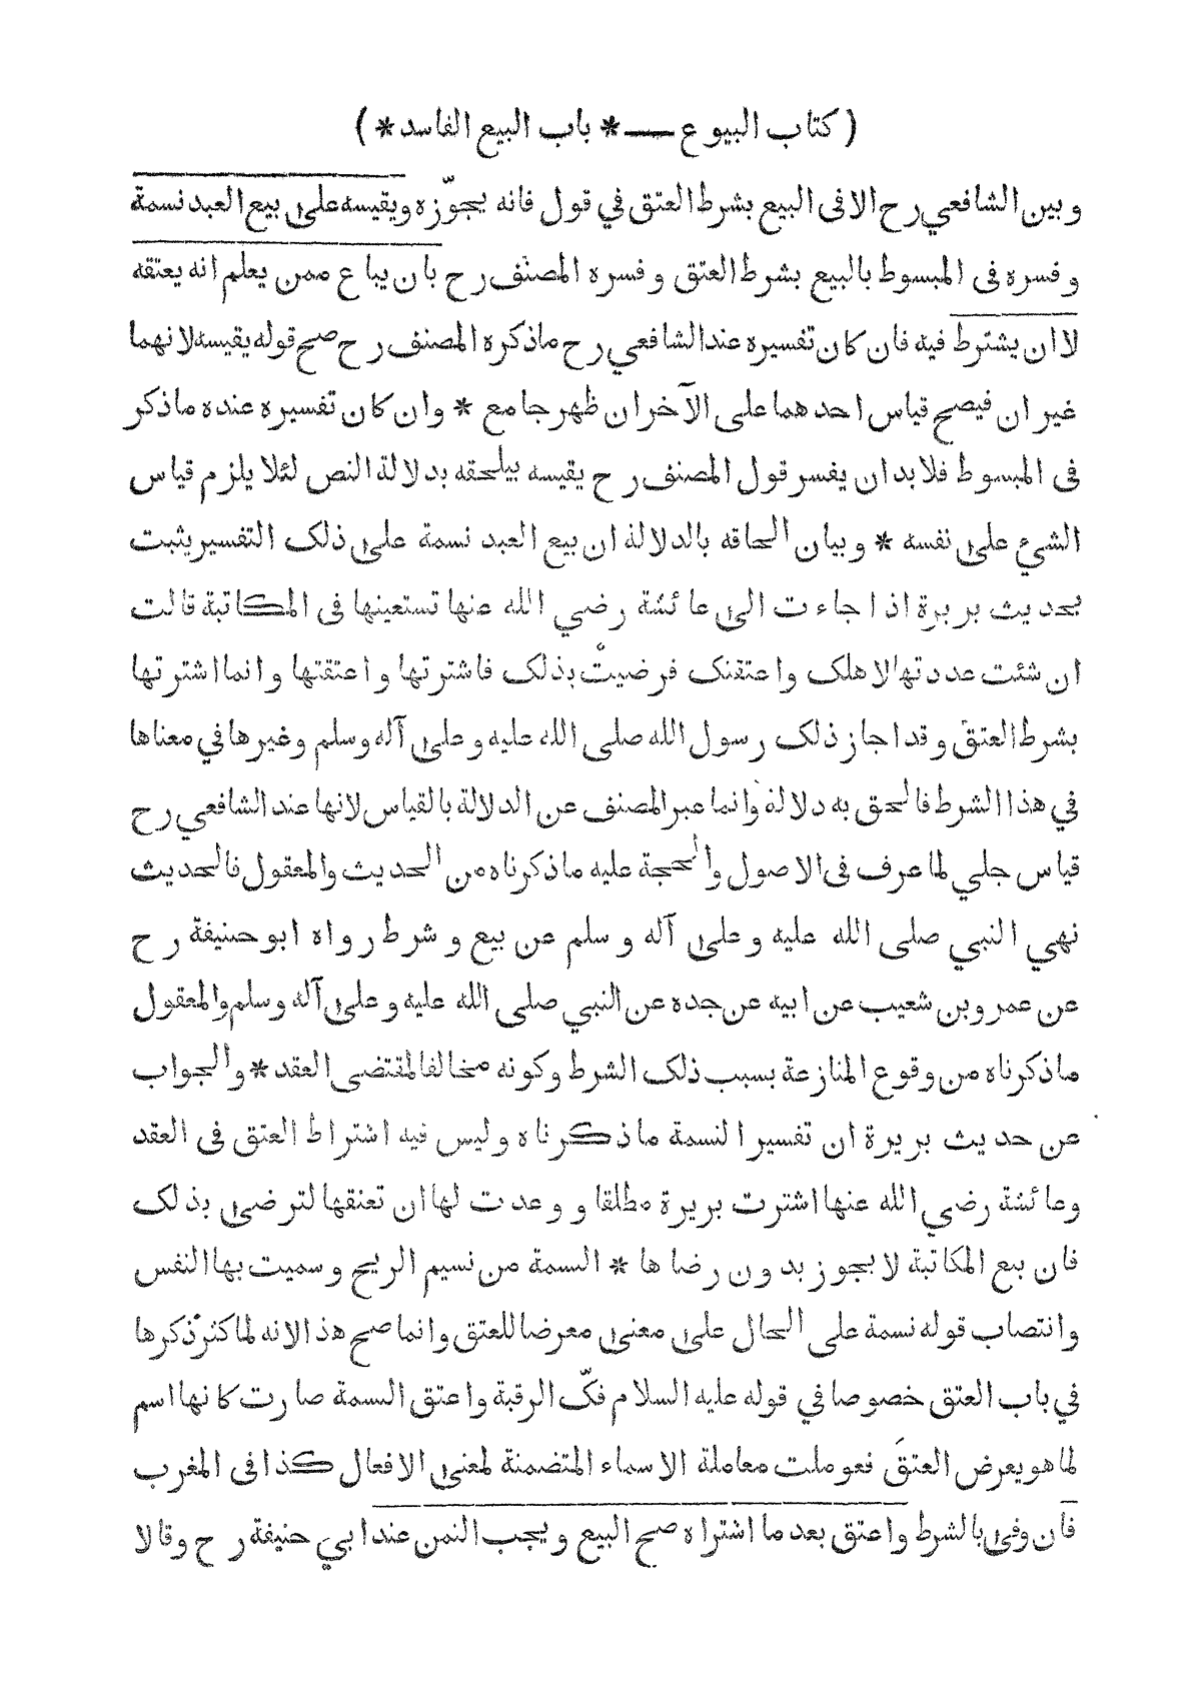 ( كتاب البيوع — * باب البيع الفاسد * )
وبين الشافعي رح الا فى البيع بشرط العتق في قول فانه يجوّزه ويقيسه على بيع العبد نسمة
وفسره فى المبسوط بالبيع بشرط العتق وفسره المصنف رح بان يباع ممن يعلم انه يعتقه
لا ان يشترط فيه فان كان تفسيره عند الشافعي رح ما ذكره المصنف رح صح قوله يقيسه لانهما
غير ان فيصح قياس احدهما على الآخر ان ظهر جامع * وان كان تفسيره عنده ما ذكر
فى المبسوط فلا بد ان يفسر قول المصنف رح يقيسه بيلحقه بدلالة النص لئلا يلزم قياس
الشيء على نفسه * وبيان الحاقه بالدلالة ان بيع العبد نسمة على ذلك التفسير يثبت
بحديث بريرة اذا جاءت الى عائشة رضي الله عنها تستعينها فى المكاتبة قالت
ان شئت عددتها لاهلك واعتقنك فرضيتْ بذلك فاشترتها واعتقتها وانما اشترتها
بشرط العتق وقد اجاز ذلك رسول الله صلى الله عليه وعلى آله وسلم وغيرها في معناها
في هذا الشرط فالحق به دلالة وانما عبر المصنف عن الدلالة بالقياس لانها عند الشافعي رح
قياس جلي لما عرف فى الاصول والحجة عليه ما ذكرناه من الحديث والمعقول فالحديث
نهي النبي صلى الله عليه وعلى آله وسلم عن بيع وشرط رواه ابو حنيفة رح
عن عمرو بن شعيب عن ابيه عن جده عن النبي صلى الله عليه وعلى آله وسلم والمعقول
ما ذكرناه من وقوع المنازعة بسبب ذلك الشرط وكونه مخالفا لمقتضى العقد * والجواب
عن حديث بريرة ان تفسير النسمة ما ذكرناه وليس فيه اشتراط العتق فى العقد
وعائشة رضي الله عنها اشترت بريرة مطلقا ووعدت لها ان تعتقها لترضى بذلك
فان بيع المكاتبة لا يجوز بدون رضاها * النسمة من نسيم الريح وسميت بها النفس
وانتصاب قوله نسمة على الحال على معنى معرضا للعتق وانما صح هذا لانه لما كثر ذكرها
في باب العتق خصوصا في قوله عليه السلام فكّ الرقبة واعتق النسمة صارت كانها اسم
لما هو يعرض العتق فعوملت معاملة الاسماء المتضمنة لمعنى الافعال كذا فى المغرب
فان وفى بالشرط واعتق بعد ما اشتراه صح البيع ويجب الثمن عند ابي حنيفة رح وقالا